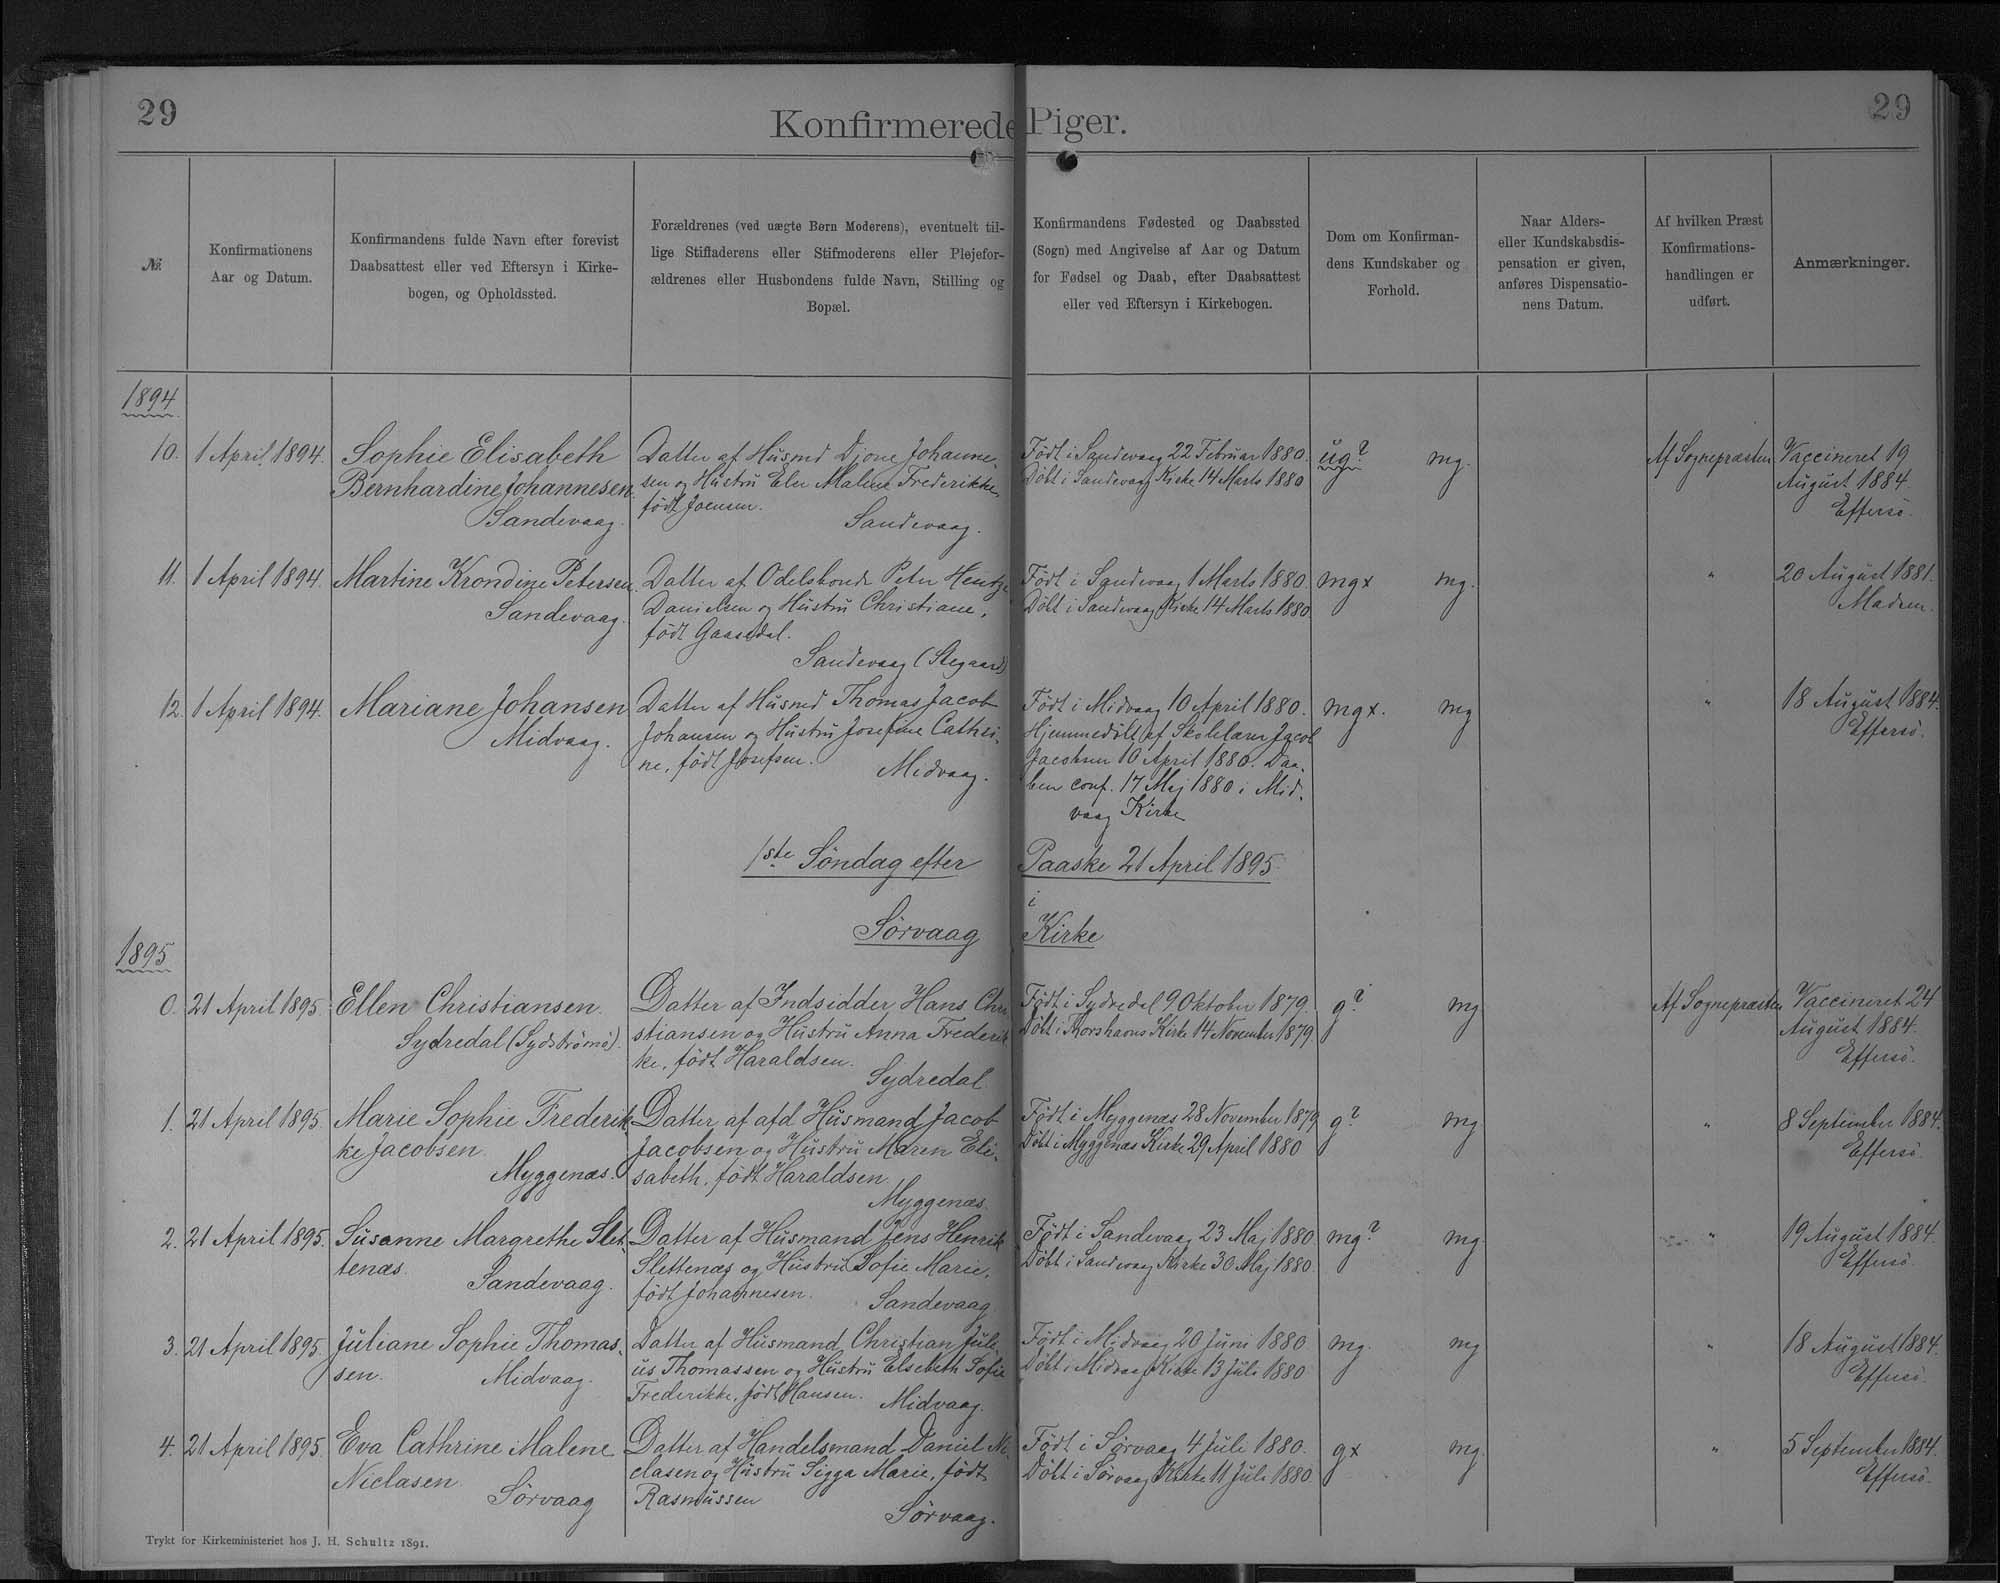 29
Konfirmerede Piger.
29
№.
Konfirmationens
Aar og Datum.
Konfirmandens fulde Navn efter forevist
Daabsattest eller ved Eftersyn i Kirke-
bogen, og Opholdssted.
Forældrenes (ved uægte Børn Moderens), eventuelt til-
lige Stiffaderens eller Stifmoderens eller Plejefor-
ældrenes eller Husbondens fulde Navn, Stilling og
Bopæl.
Konfirmandens Fødested og Daabssted
(Sogn) med Angivelse af Aar og Datum
for Fødsel og Daab, efter Daabsattest
eller ved Eftersyn i Kirkebogen.
Dom om Konfirman-
dens Kundskaber og
Forhold.
Naar Alders-
eller Kundskabsdis-
pensation er given,
anføres Dispensatio-
nens Datum.
Af hvilken Præst
Konfirmations-
handlingen er
udført.
Anmærkninger.
1894
10.
1 April 1894.
Sophie Elisabeth
Bernhardine Johannesen
Sandevaag.
Datter af Husmd Djone Johanne-
sen og Hustru Elen Malene Frederikke,
født Joensen.
Sandevaag.
Født i Sandevaag 22 Februar 1880.
Döbt i Sandevaag Kirke 14 Marts 1880
ug?
mg.
Af Sognepræsten
Vaccineret 19
August 1884.
Effersö.
11.
1 April 1894.
Martine Krondine Petersen
Sandevaag.
Datter af Odelsbonde Peter Hentze
Danielsen og Hustru Christiane,
født Gaasedal.
Sandevaag (Stegaard)
Født i Sandevaag 1 Marts 1880.
Döbt i Sandevaag Kirke 14 Marts 1880.
mgx
mg.
"
20 August 1881.
Madsen.
12.
1 April 1894.
Mariane Johansen
Midvaag.
Datter af Husmd Thomas Jacob
Johansen og Hustru Josefine Cathri-
ne, født Josefsen.
Midvaag.
Født i Midvaag 10 April 1880.
Hjemmedöbt af Skolelærer Jacob
Jacobsen 10 April 1880. Daa-
ben conf. 17 Maj 1880 i Mid-
vaag Kirke
mgx.
mg
"
18 August 1884.
Effersö.
1ste Söndag efter Paaske 21 April 1895
i
Sörvaag Kirke
1895
0.
21 April 1895.
Ellen Christiansen.
Sydredal (Sydströmö).
Datter af Indsidder Hans Chri
stiansen og Hustru Anna Frederik
ke, født Haraldsen.
Sydredal.
Født i Sydredal 9 Oktober 1879.
Döbt i Thorshavns Kirke 14 November 1879.
g?
mg
Af Sognepræsten
Vaccineret 24
August 1884.
Effersö.
1.
21 April 1895.
Marie Sophie Frederik-
ke Jacobsen.
Myggenæs.
Datter af afd Husmand Jacob
Jacobsen og Hustru Maren Eli-
sabeth, født Haraldsen.
Myggenæs.
Født i Myggenæs 28 November 1879
Döbt i Myggenæs Kirke 29 April 1880
g?
mg
"
8 September 1884.
Effersö.
2.
21 April 1895.
Susanne Margrethe Slet-
tenæs.
Sandevaag.
Datter af Husmand Jens Henrik
Slettenæs og Hustru Sofie Marie,
født Johannesen.
Sandevaag.
Født i Sandevaag 23 Maj 1880.
Döbt i Sandevaag Kirke 30 Maj 1880.
mg?
mg.
"
19 August 1884.
Effersö.
3.
21 April 1895.
Juliane Sophie Thomas-
sen.
Midvaag.
Datter af Husmand Christian Juli-
us Thomassen og Hustru Elsebeth Sofie
Frederikke, født Hansen.
Midvaag.
Født i Midvaag 20 Juni 1880
Döbt i Midvaag Kirke 13 Juli 1880
mg.
mg
"
18 August 1884.
Effersö.
4.
21 April 1895.
Eva Cathrine Malene
Niclasen.
Sörvaag
Datter af Handelsmand Daniel Ni
clasen og Hustru Sigga Marie, født
Rasmussen
Sörvaag.
Født i Sörvaag 4 Juli 1880.
Döbt i Sörvaag Kirke 11 Juli 1880.
gx
mg.
"
5 September 1884.
Effersö.
Trykt for Kirkeministeriet hos J. H. Schultz 1891.